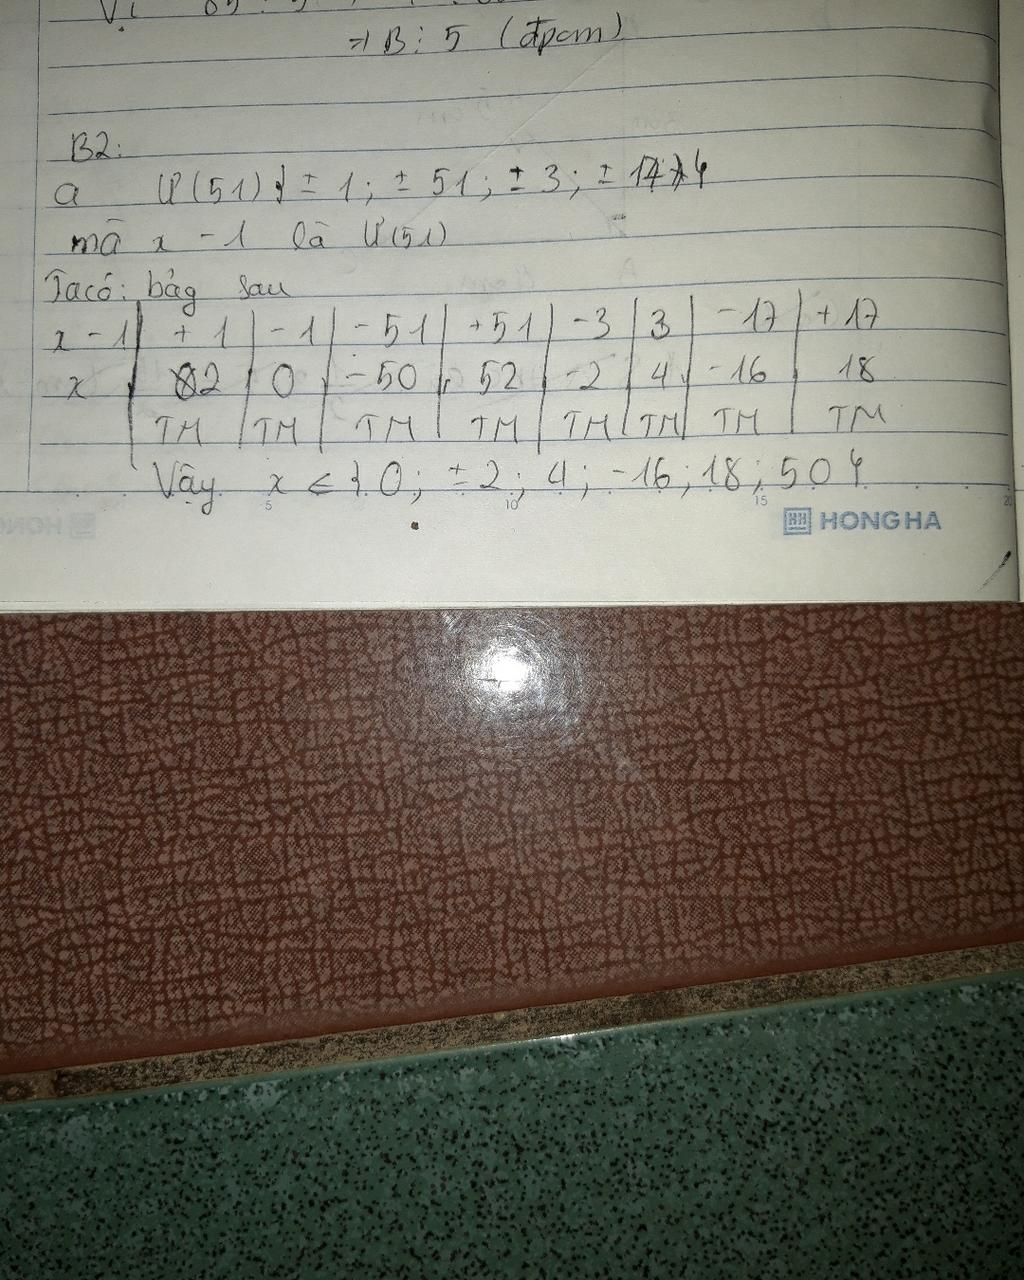 Vì
=> B ⋮ 5 (đpcm)
B2:
a Ư(51) { ± 1; ± 51; ± 3; ± 17 }
mà x - 1 là Ư(51)
Ta có: bảg sau
x - 1 | + 1 | - 1 | - 51 | + 51 | - 3 | 3 | - 17 | + 17
x | 2 | 0 | - 50 | 52 | - 2 | 4 | - 16 | 18
TM | TM | TM | TM | TM | TM | TM | TM
Vậy x ∈ { 0; ± 2; 4; -16; 18; 50 }
5 10 15 20
HONG HA